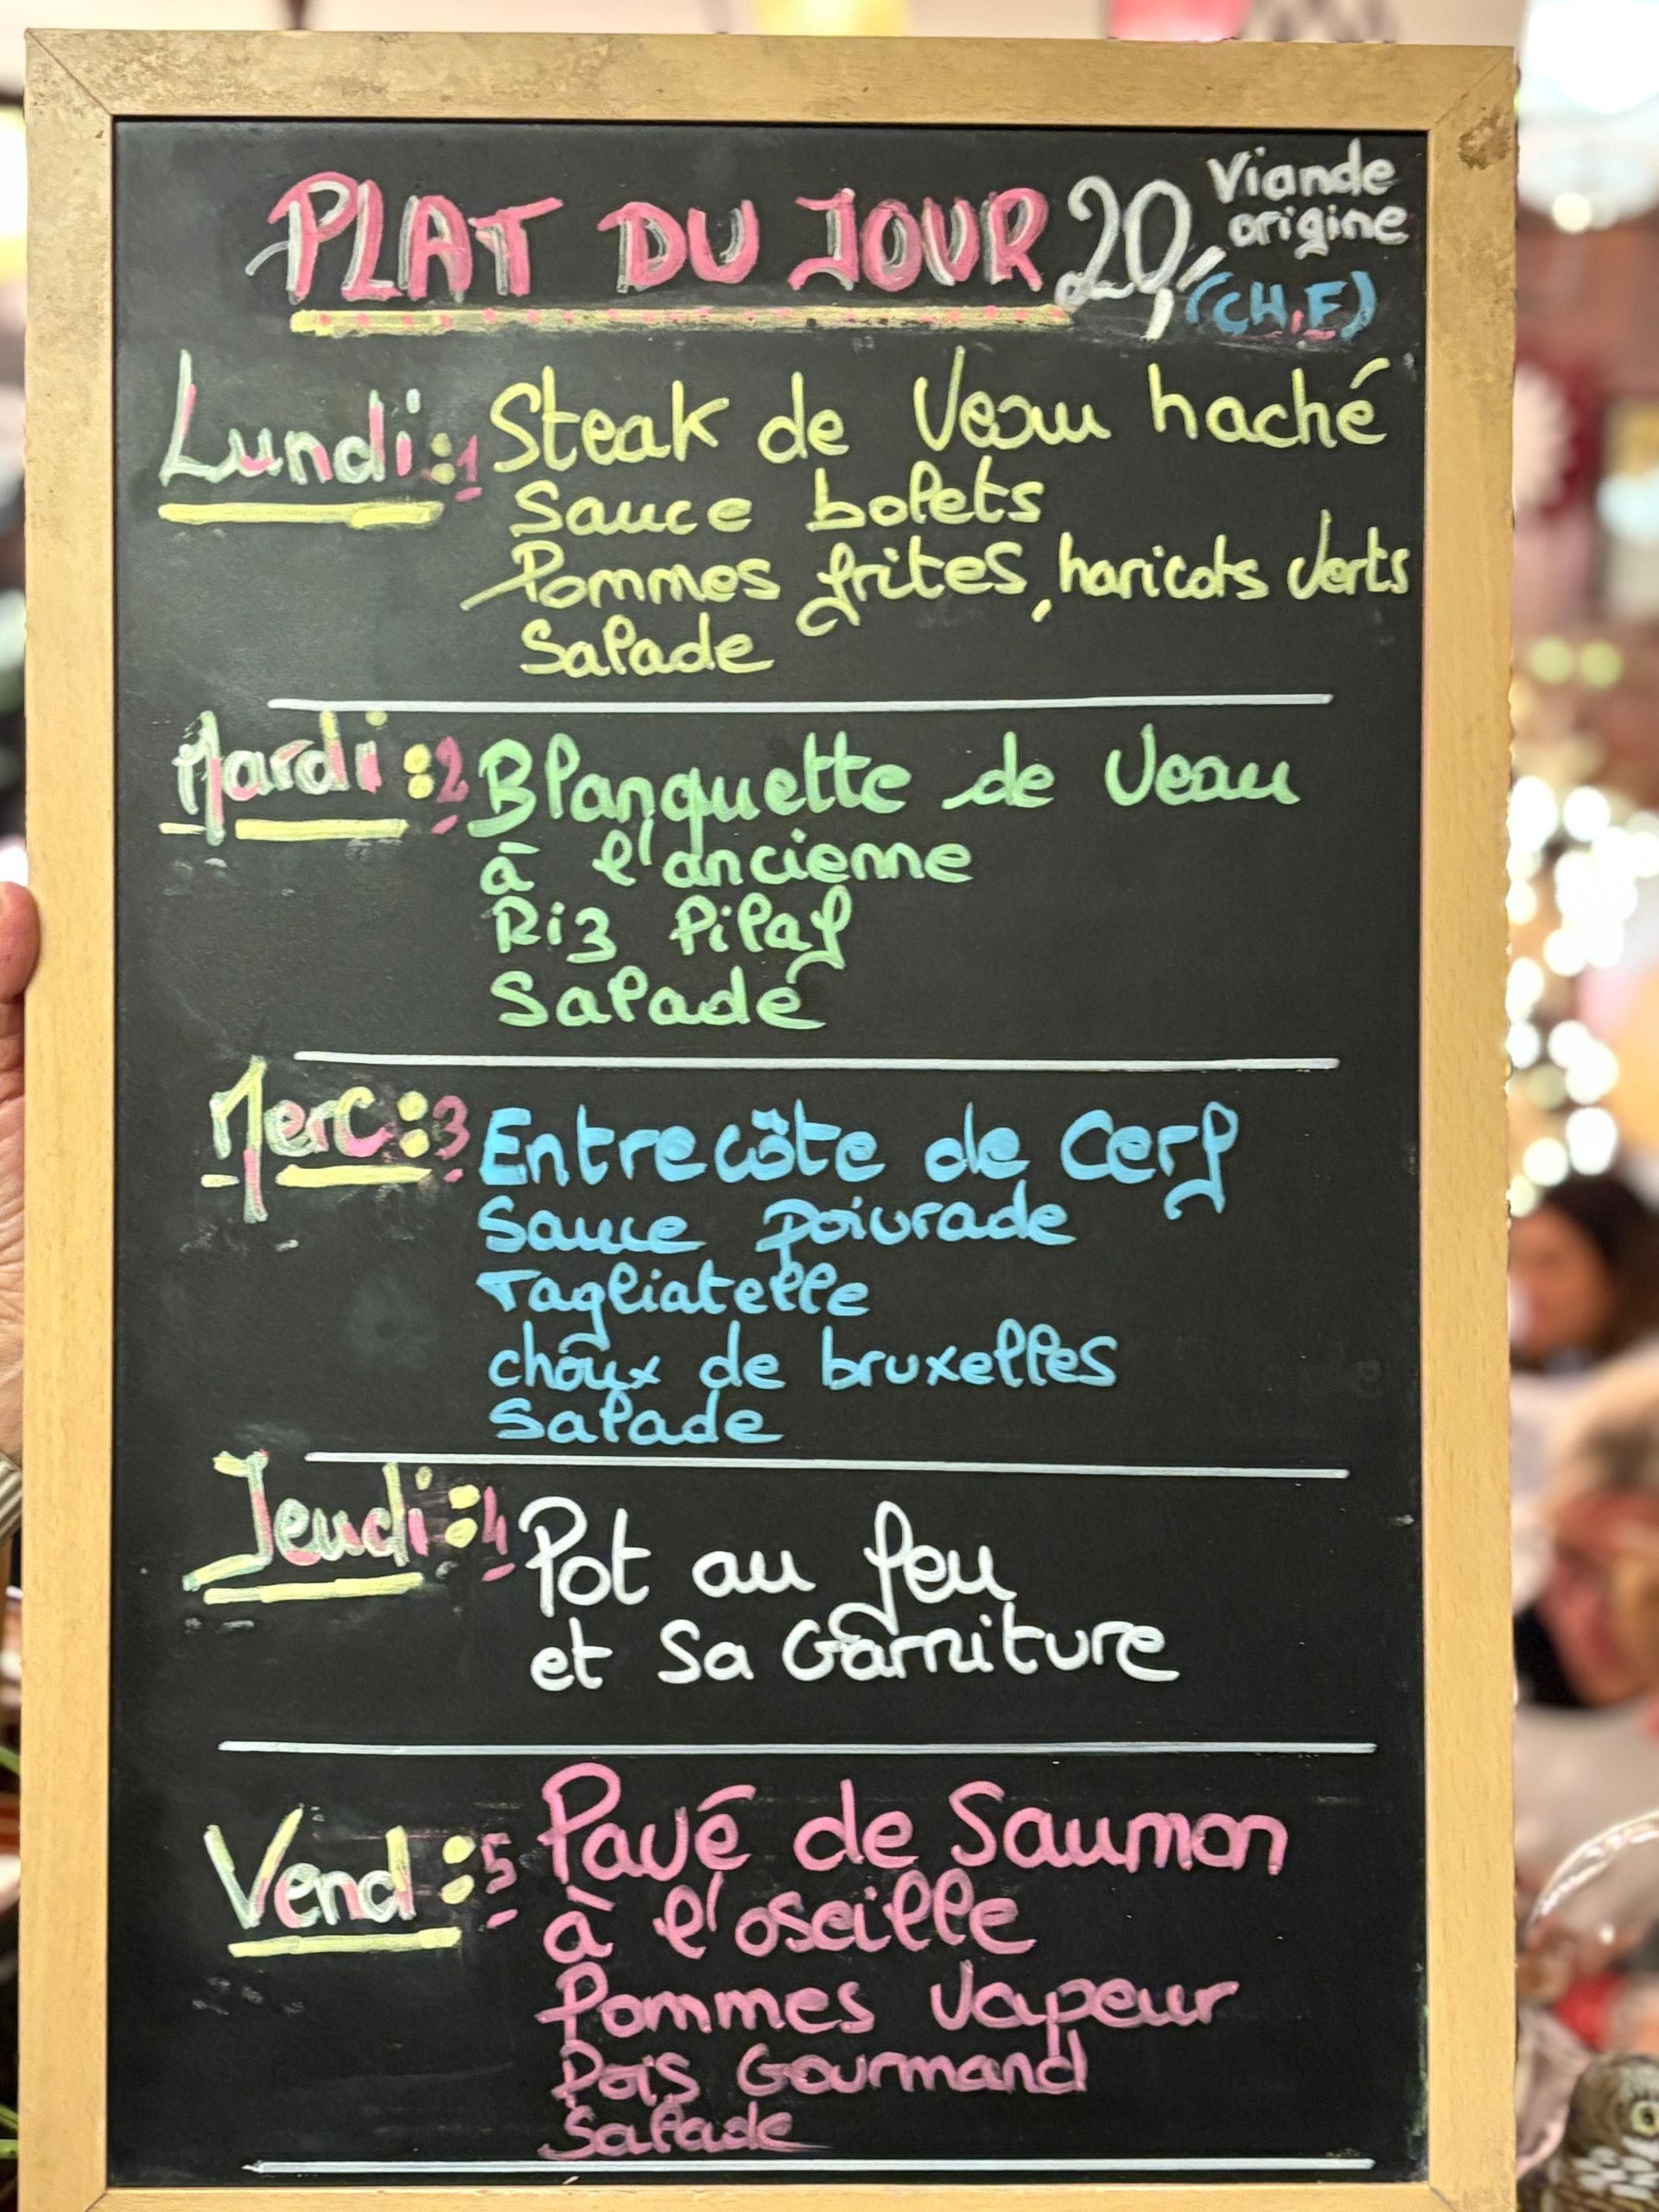 PLAT DU JOUR 20,-
Viande
origine
(CH,F)
Lundi : 1 Steak de Veau haché
Sauce bolets
Pommes frites, haricots verts
Salade
Mardi : 2 Blanquette de Veau
à l'ancienne
Riz Pilaf
Salade
Merc : 3 Entrecôte de Cerf
Sauce poivrade
Tagliatelle
choux de bruxelles
Salade
Jeudi : 4 Pot au feu
et Sa Garniture
Vend : 5 Pavé de Saumon
à l'oseille
Pommes Vapeur
Pois Gourmand
Salade